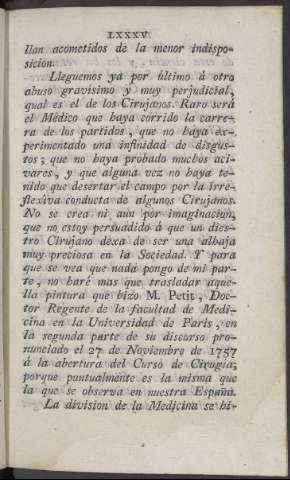 LXXXV
llan acometidos de la menor indispo-
sicion.
Lleguemos ya por último á otro
abuso gravisimo y muy perjudicial,
qual es el de los Cirujanos. Raro será
el Médico que haya corrido la carre-
ra de los partidos, que no haya ex-
perimentado una infinidad de disgus-
tos; que no haya probado muchos aci-
vares, y que alguna vez no haya te-
nido que desertar el campo por la irre-
flexiva conducta de algunos Cirujanos.
No se crea ni aun por imaginacion,
que no estoy persuadido á que un dies-
tro Cirujano dexa de ser una alhaja
muy preciosa en la Sociedad. Y para
que se vea que nada pongo de mi par-
te, no haré mas que trasladar aque-
lla pintura que hizo M. Petit, Doc-
tor Regente de la facultad de Medi-
cina en la Universidad de Paris, en
la segunda parte de su discurso pro-
nunciado el 27 de Noviembre de 1757
á la abertura del Curso de Cirugía,
porque puntualmente es la misma que
la que se observa en nuestra España.
La division de la Medicina se hi-